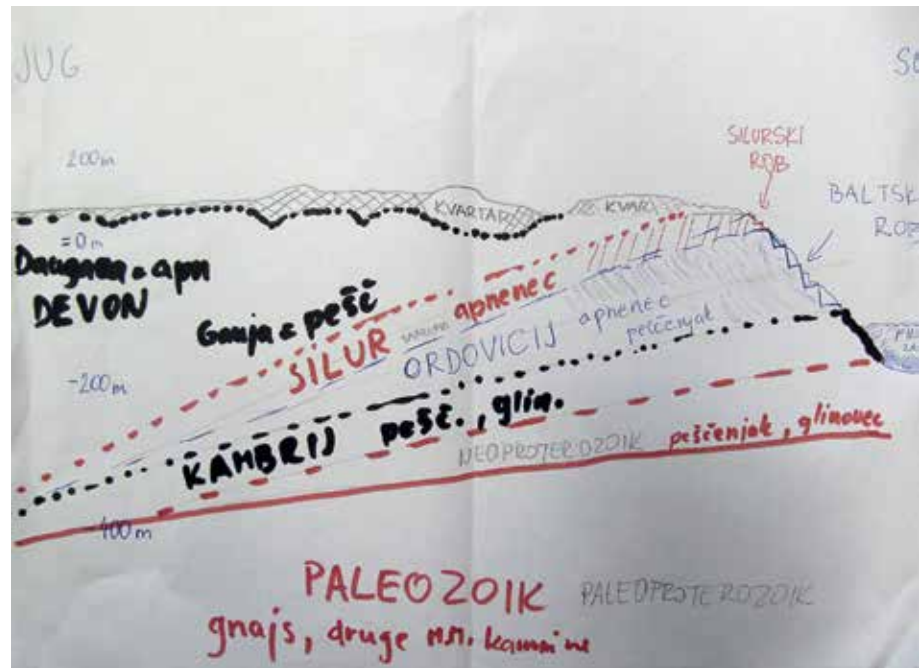 JUG
200m
SILURSKI
ROB
BALTSK
ROB
KVARTAR
KVAR
=0m
Daugava = apn
DEVON
Gauja = pešč
SILUR apnenec
ORDOVICIJ apnenec
peščenjak
-200m
KAMBRIJ pešč., glin.
NEOPROTEROZOIK peščenjak, glinovec
-400m
PALEOZOIK PALEOPROTEROZOIK
gnajs, druge m.m. kamnine